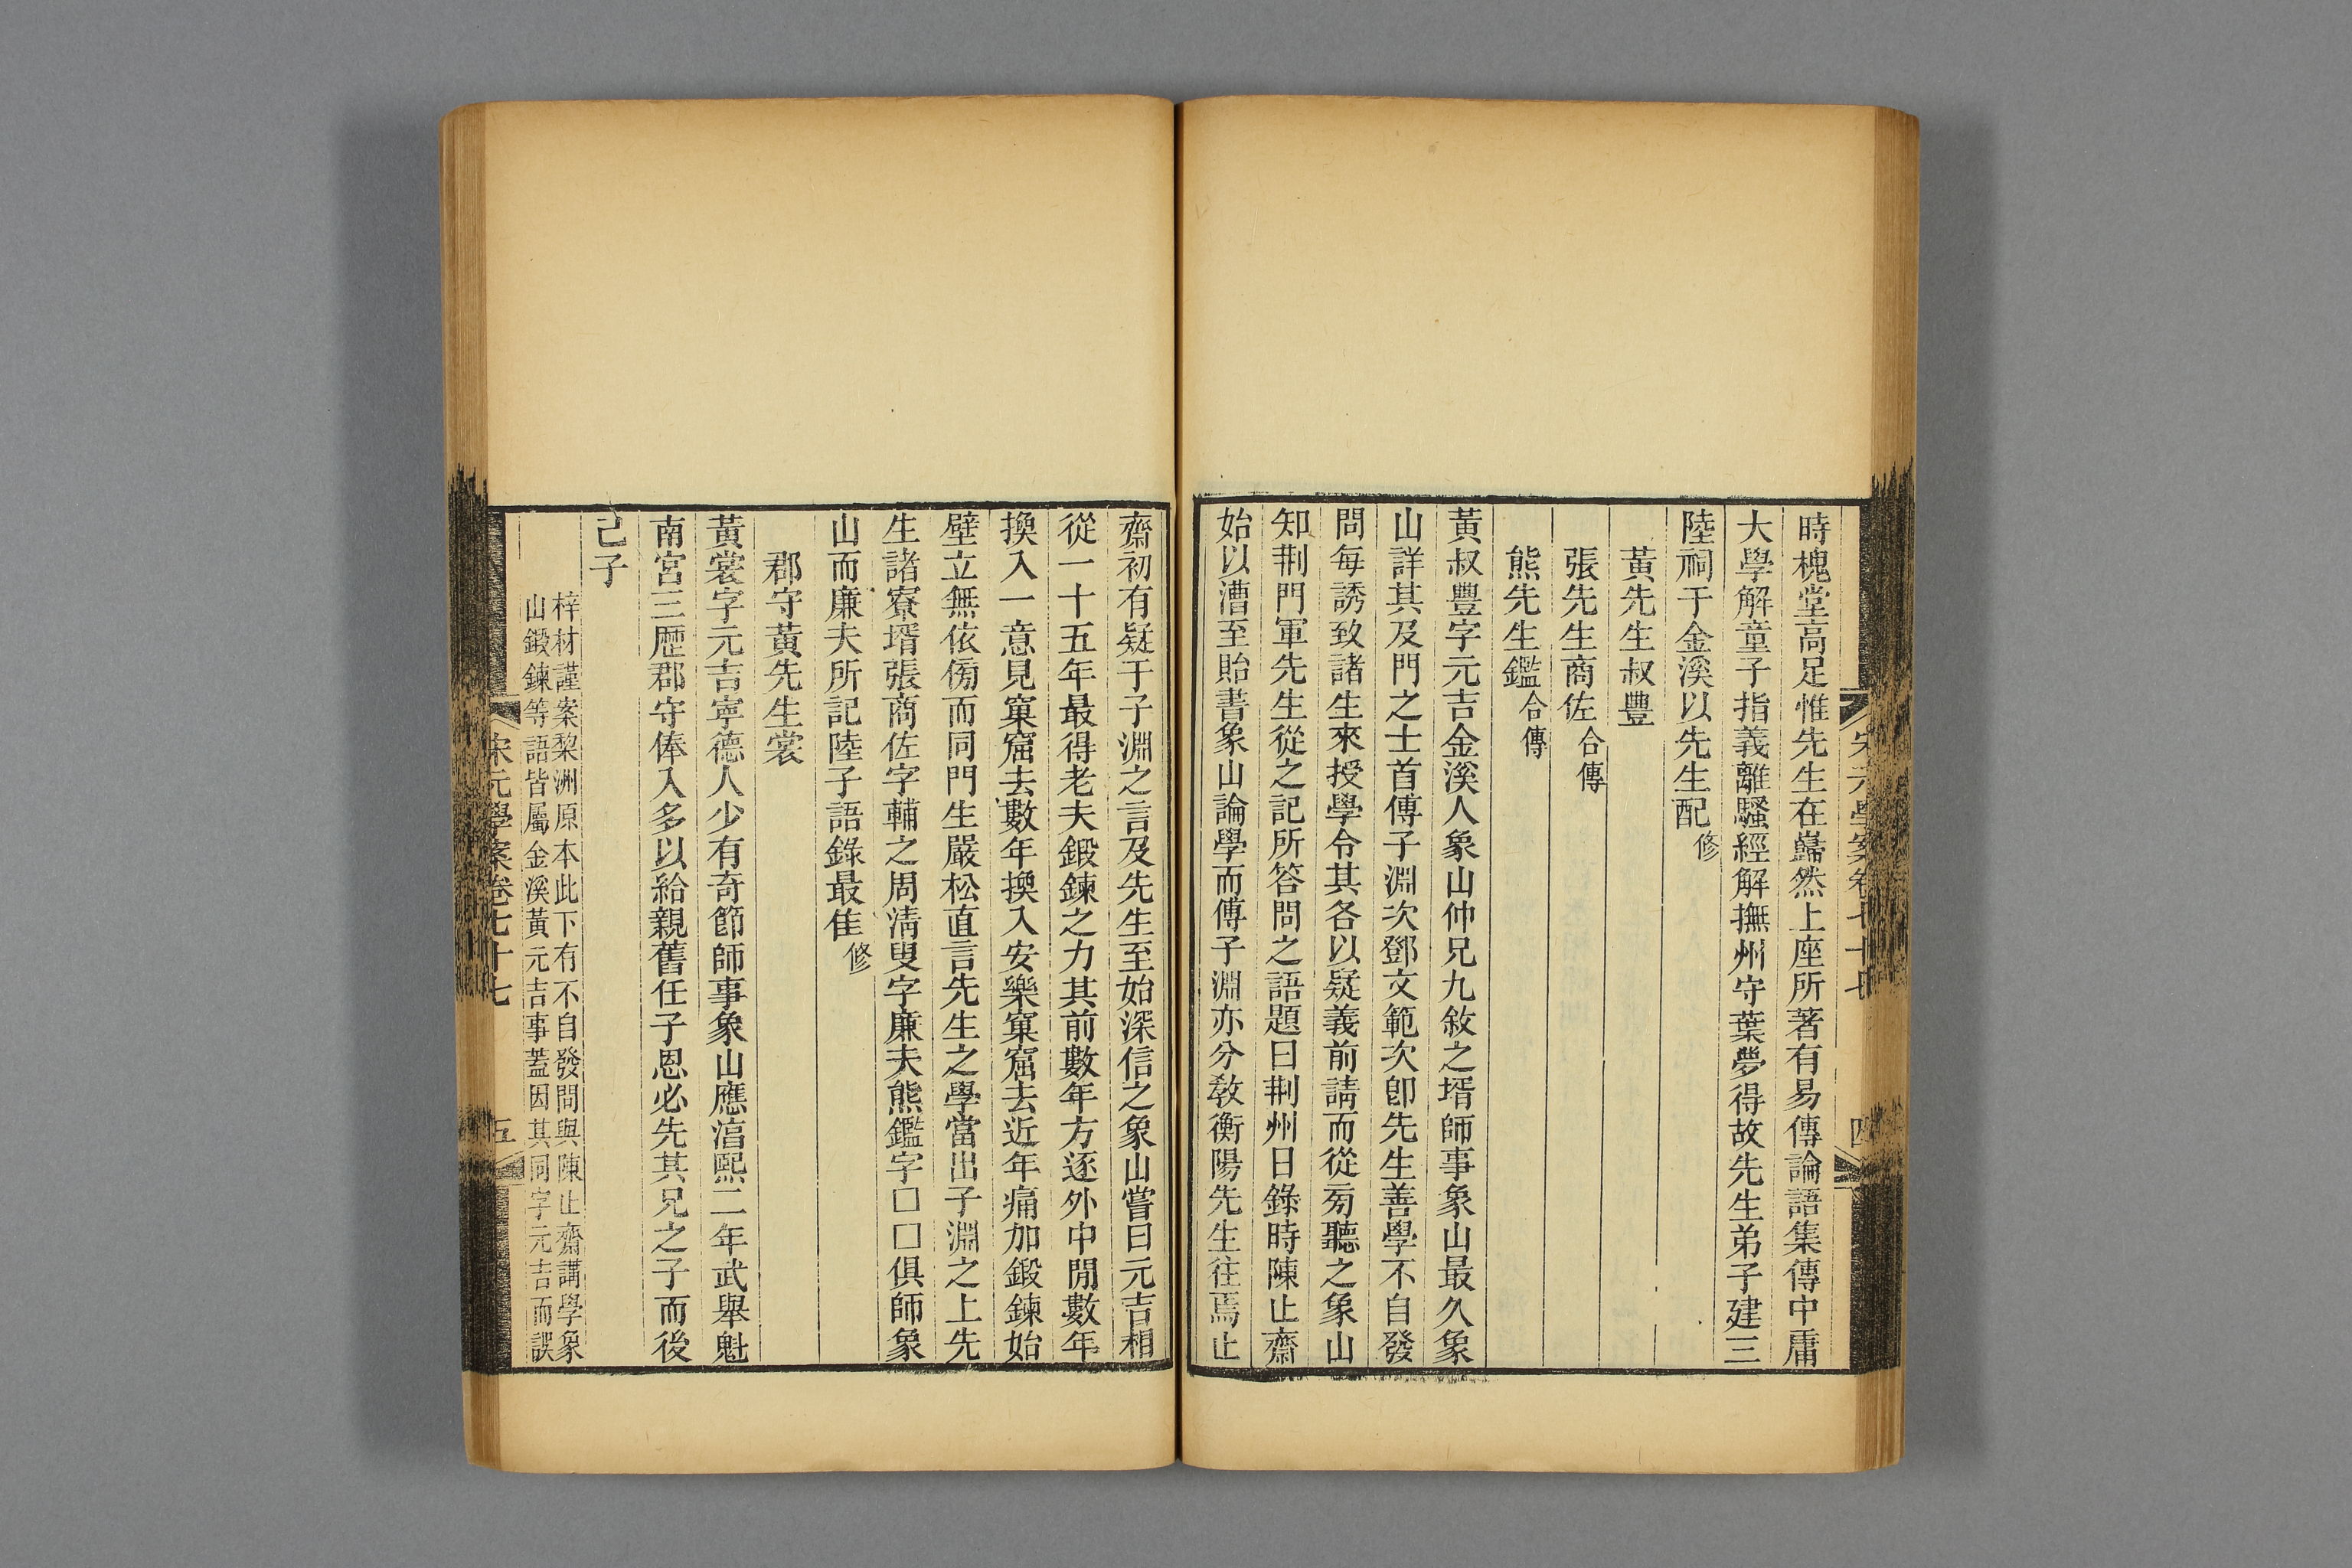 宋元學案卷七十七
四
時槐堂高足惟先生在巋然上座所著有易傳論語集傳中庸
大學解童子指義離騷經解撫州守葉夢得故先生弟子建三
陸祠于金溪以先生配修
黃先生叔豐
張先生商佐合傳
熊先生鑑合傳
黃叔豐字元吉金溪人象山仲兄九敘之壻師事象山最久象
山詳其及門之士首傅子淵次鄧文範次卽先生善學不自發
問每誘致諸生來授學令其各以疑義前請而從旁聽之象山
知荆門軍先生從之記所答問之語題曰荆州日錄時陳止齋
始以漕至貽書象山論學而傅子淵亦分敎衡陽先生往焉止
齋初有疑于子淵之言及先生至始深信之象山嘗曰元吉相
從一十五年最得老夫鍛鍊之力其前數年方逐外中閒數年
換入一意見窠窟去數年換入安樂窠窟去近年痛加鍛鍊始
壁立無依傍而同門生嚴松直言先生之學當出子淵之上先
生諸寮壻張商佐字輔之周淸叟字廉夫熊鑑字□□俱師象
山而廉夫所記陸子語錄最佳修
郡守黃先生裳
黃裳字元吉寧德人少有奇節師事象山應湻熙二年武舉魁
南宮三歷郡守俸入多以給親舊任子恩必先其兄之子而後
己子
梓材謹案黎洲原本此下有不自發問與陳止齋講學象
山鍛鍊等語皆屬金溪黃元吉事蓋因其同字元吉而誤
宋元學案卷七十七
五